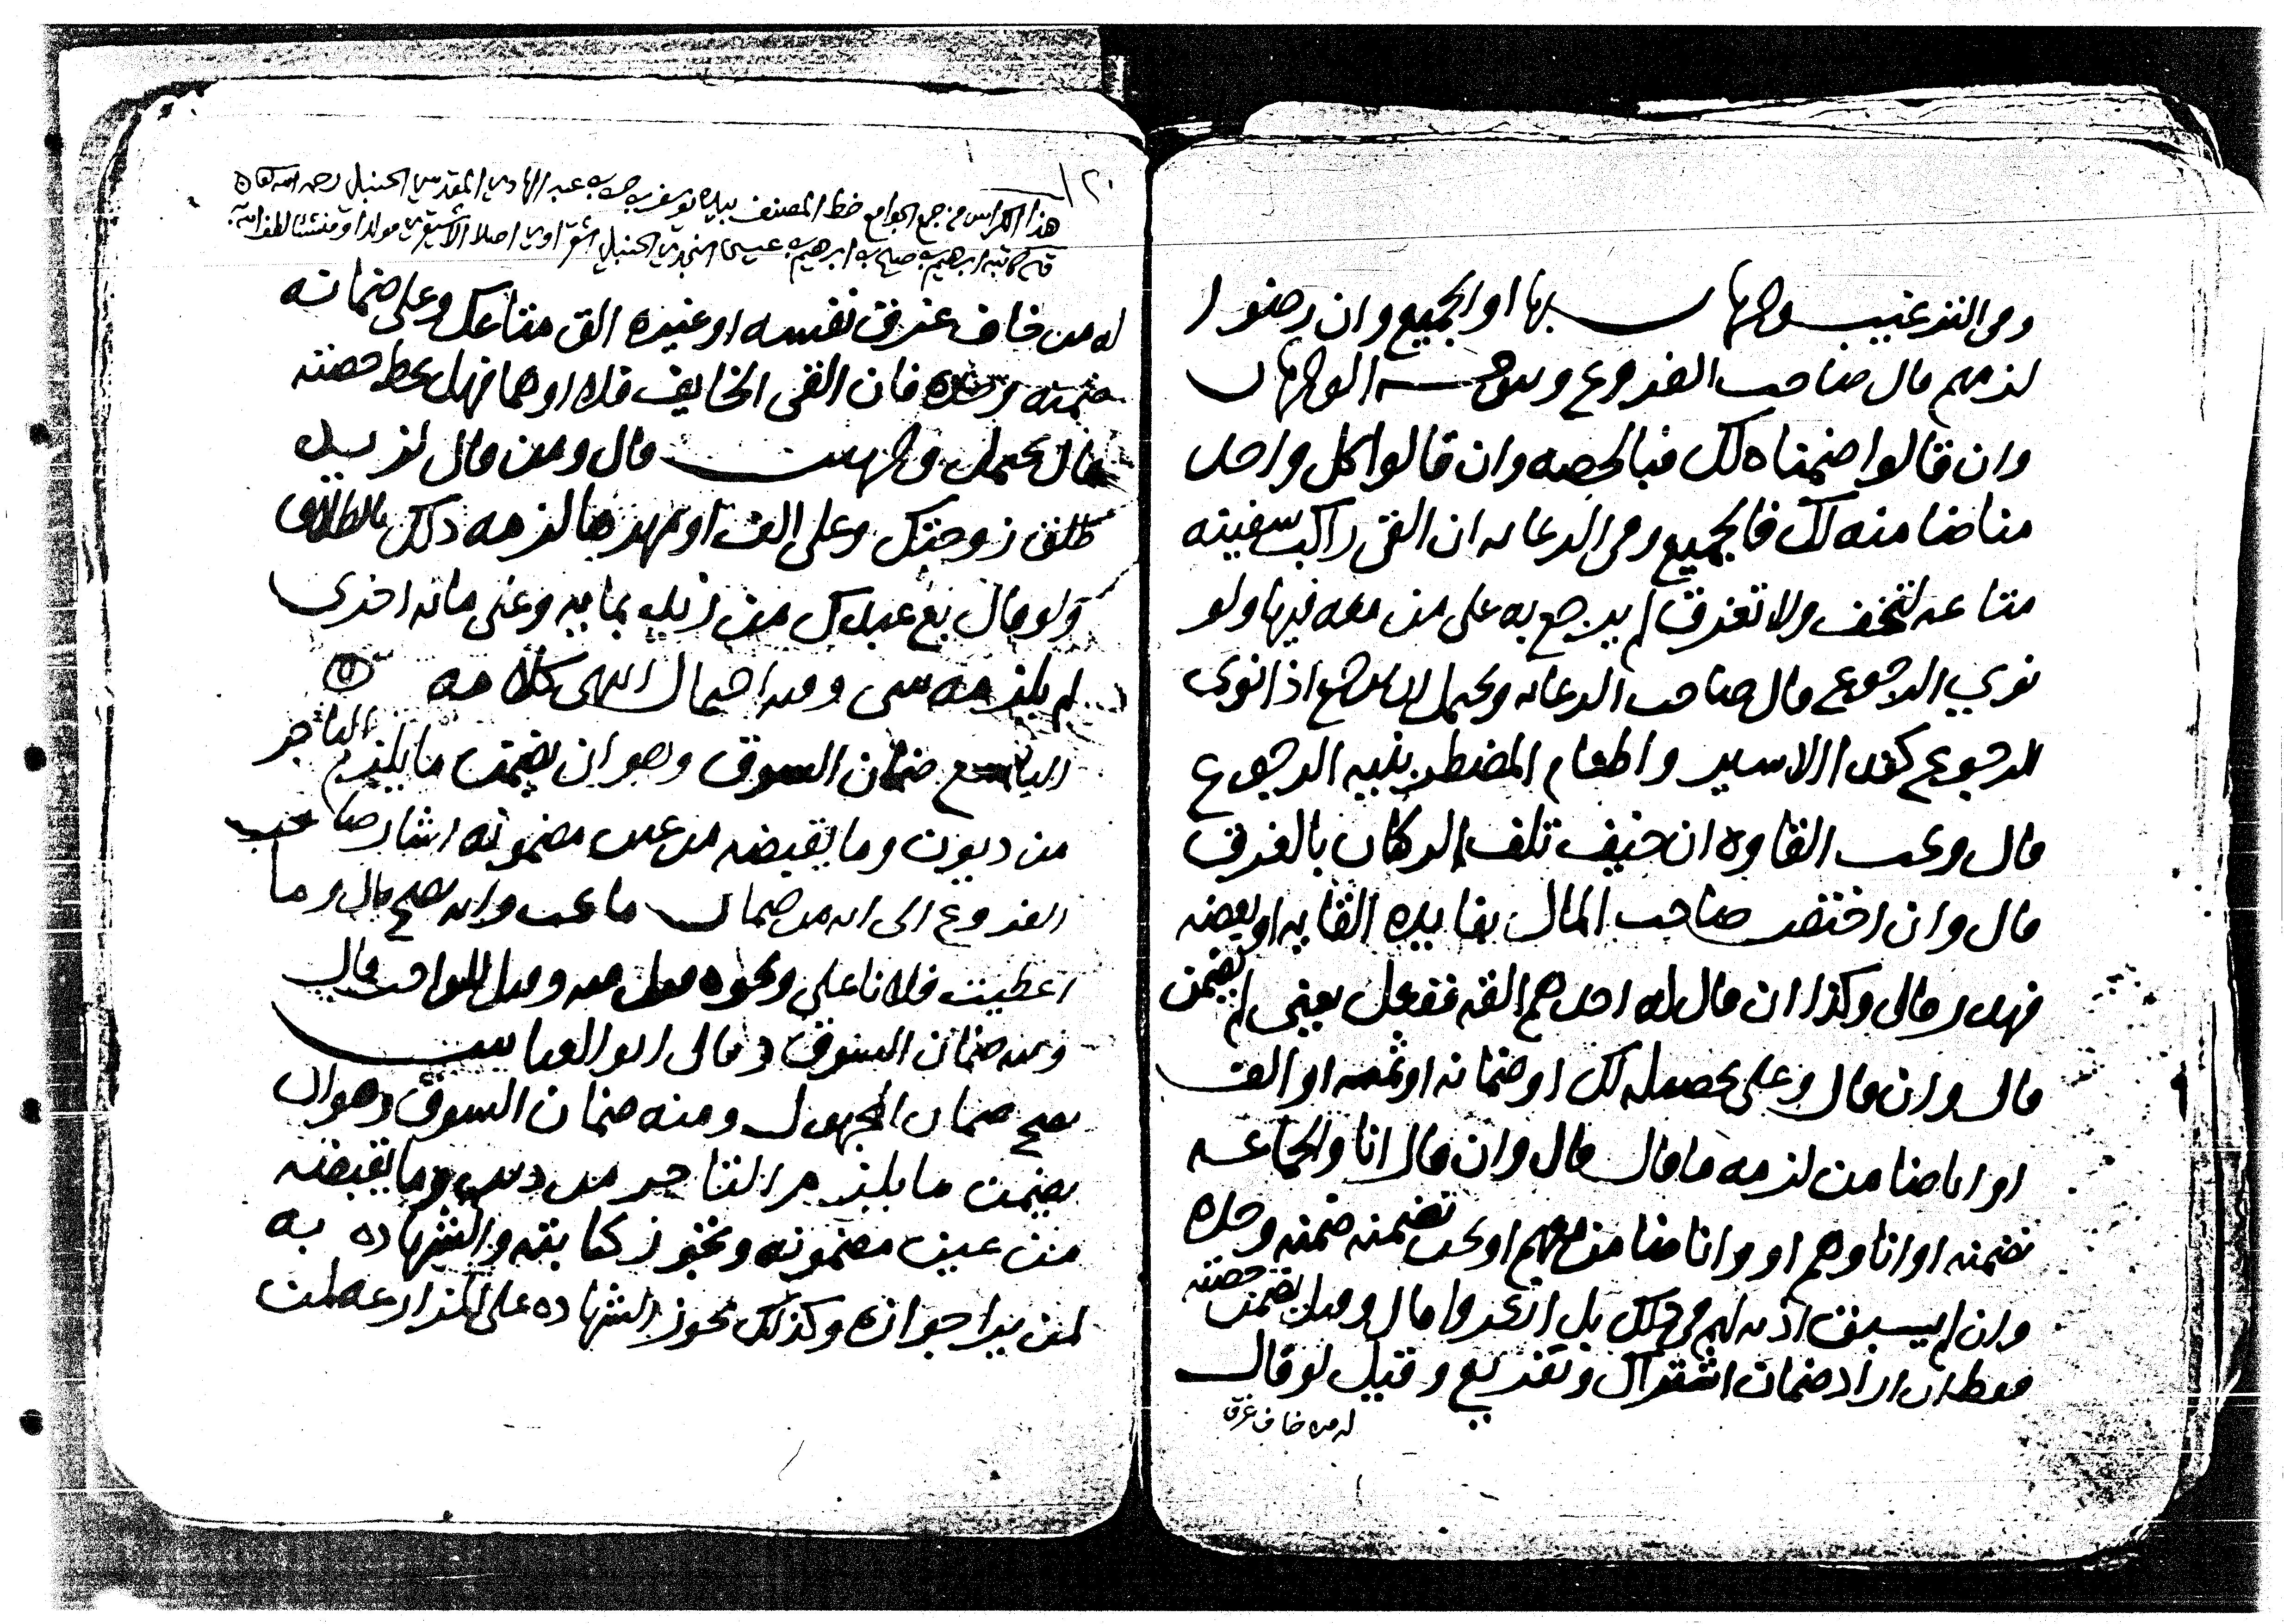 وفي الترغيب وجهان بها او الجميع وان رضوا
لزمهم قال صاحب الفروع وىىوجه الوجهان
وان قالوا ضمناه لك فبالحصه وان قالوا كل واحد
منا ضامنه لك فالجميع وفي الرعايه ان القى راكب سفينه
متاعه لتخف ولا تغرق لم يرجع به على من معه فيها ولو
نوي الرجوع قال صاحب الرعايه ويحتمل ان يرجع اذا نوى
الرجوع كفدا الاسير واطعام المضطر بنيه الرجوع
قال ويجب القاوه ان خيف تلف الركاب بالغرق
قال وان اختص صاحب المال بفايده القايه او بعضه
فهدر قال وكذا ان قال له احدهم القه ففعل يعني لم يضمن
قال وان قال وعلي تحصيله لك او ضمانه او ثمنه او الف
او انا ضامن لزمه ما قال قال وان قال انا والجماعه
نضمنه او انا وهم او وانا ضامن معهم او نحن نضمنه ضمنه وحده
وان لم يسبق اذنهم في ذلك بل انكروا قال وقيل يضمن حصته
فقط ان اراد ضمان اشتراك وتفريع وقيل لو قال
له من خاف غرق
٢٠
هذا الكراس من جمع الجوامع خط المصنف بيده يوسف بن حسن بن عبد الهادي المقدسي الحنبلي رحمه الله تعالى
قاله كاتبه ابرهيم بن صالح بن ابرهيم بن عيسى النجدي الحنبلي اشقراوي اصلا الاشيقري مولدا ومنشئا لطف الله به
له من خاف غرق نفسه او غيره الق متاعك وعلي ضمانه
ضمنه وحده فان القى الخايف فلا او هما فهل يحط حصته
قال يحتمل وجهين قال ومن قال لزيد
طلق زوجتك وعلي الف او مهرها لزمه ذلك بالطلاق
ولو قال بع عبدك من زيد بمايه وعلي مائه اخرى
لم يلزمه شي وفيه احتمال انتهى كلامه
التاسع ضمان السوق وهو ان يضمن ما يلزم التاجر
من ديون وما يقبضه من عين مضمونه اشار صاحب
الفروع الى انه من ضمان ما يجب وانه يصح قال وما
اعطيت فلانا علي ونحوه قبل منه وقيل للواجب قال
ومنه ضمان السوق وقال ابو العباس
يصح ضمان المجهول ومنه ضمان السوق وهو ان
يضمن ما يلزم التاجر من دين وما يقبضه
من عين مضمونه وتجوز كتابته والشهاده به
لمن يرا جوازه وكذلك تجوز الشهاده على المزارعه لمن